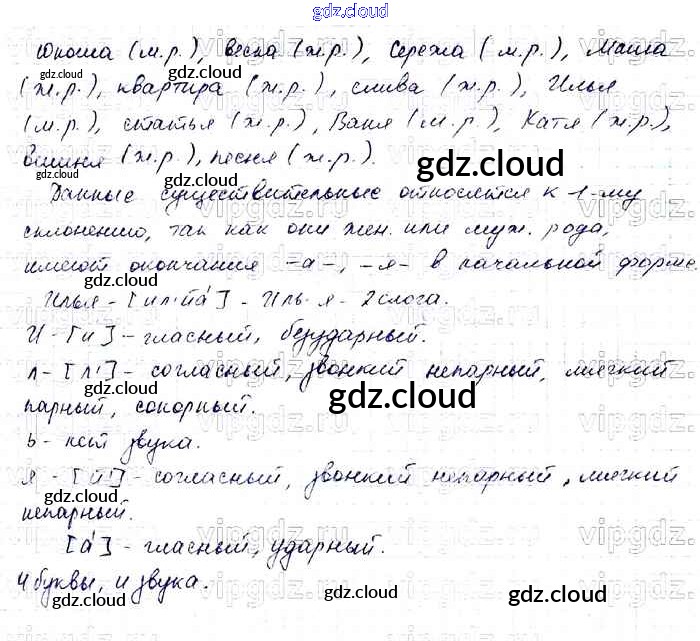 gdz.cloud
Юноша (м.р.), весна (ж.р.), Сережа (м.р.), Маша
(ж.р.), квартира (ж.р.), слива (ж.р.), Илья
(м.р.), статья (ж.р.), Ваня (м.р.), Катя (ж.р.),
вишня (ж.р.), песня (ж.р.).
Данные существительные относятся к 1-му
склонению, так как они жен. или муж. рода,
имеют окончания -а-, -я- в начальной форме.
Илья - [ил'й'а́] - Иль-я - 2 слога.
И - [и] - гласный, безударный.
л - [л'] - согласный, звонкий непарный, мягкий
парный, сонорный.
ь - нет звука.
я - [й'] - согласный, звонкий непарный, мягкий
непарный.
[а́] - гласный, ударный.
4 буквы, 4 звука.